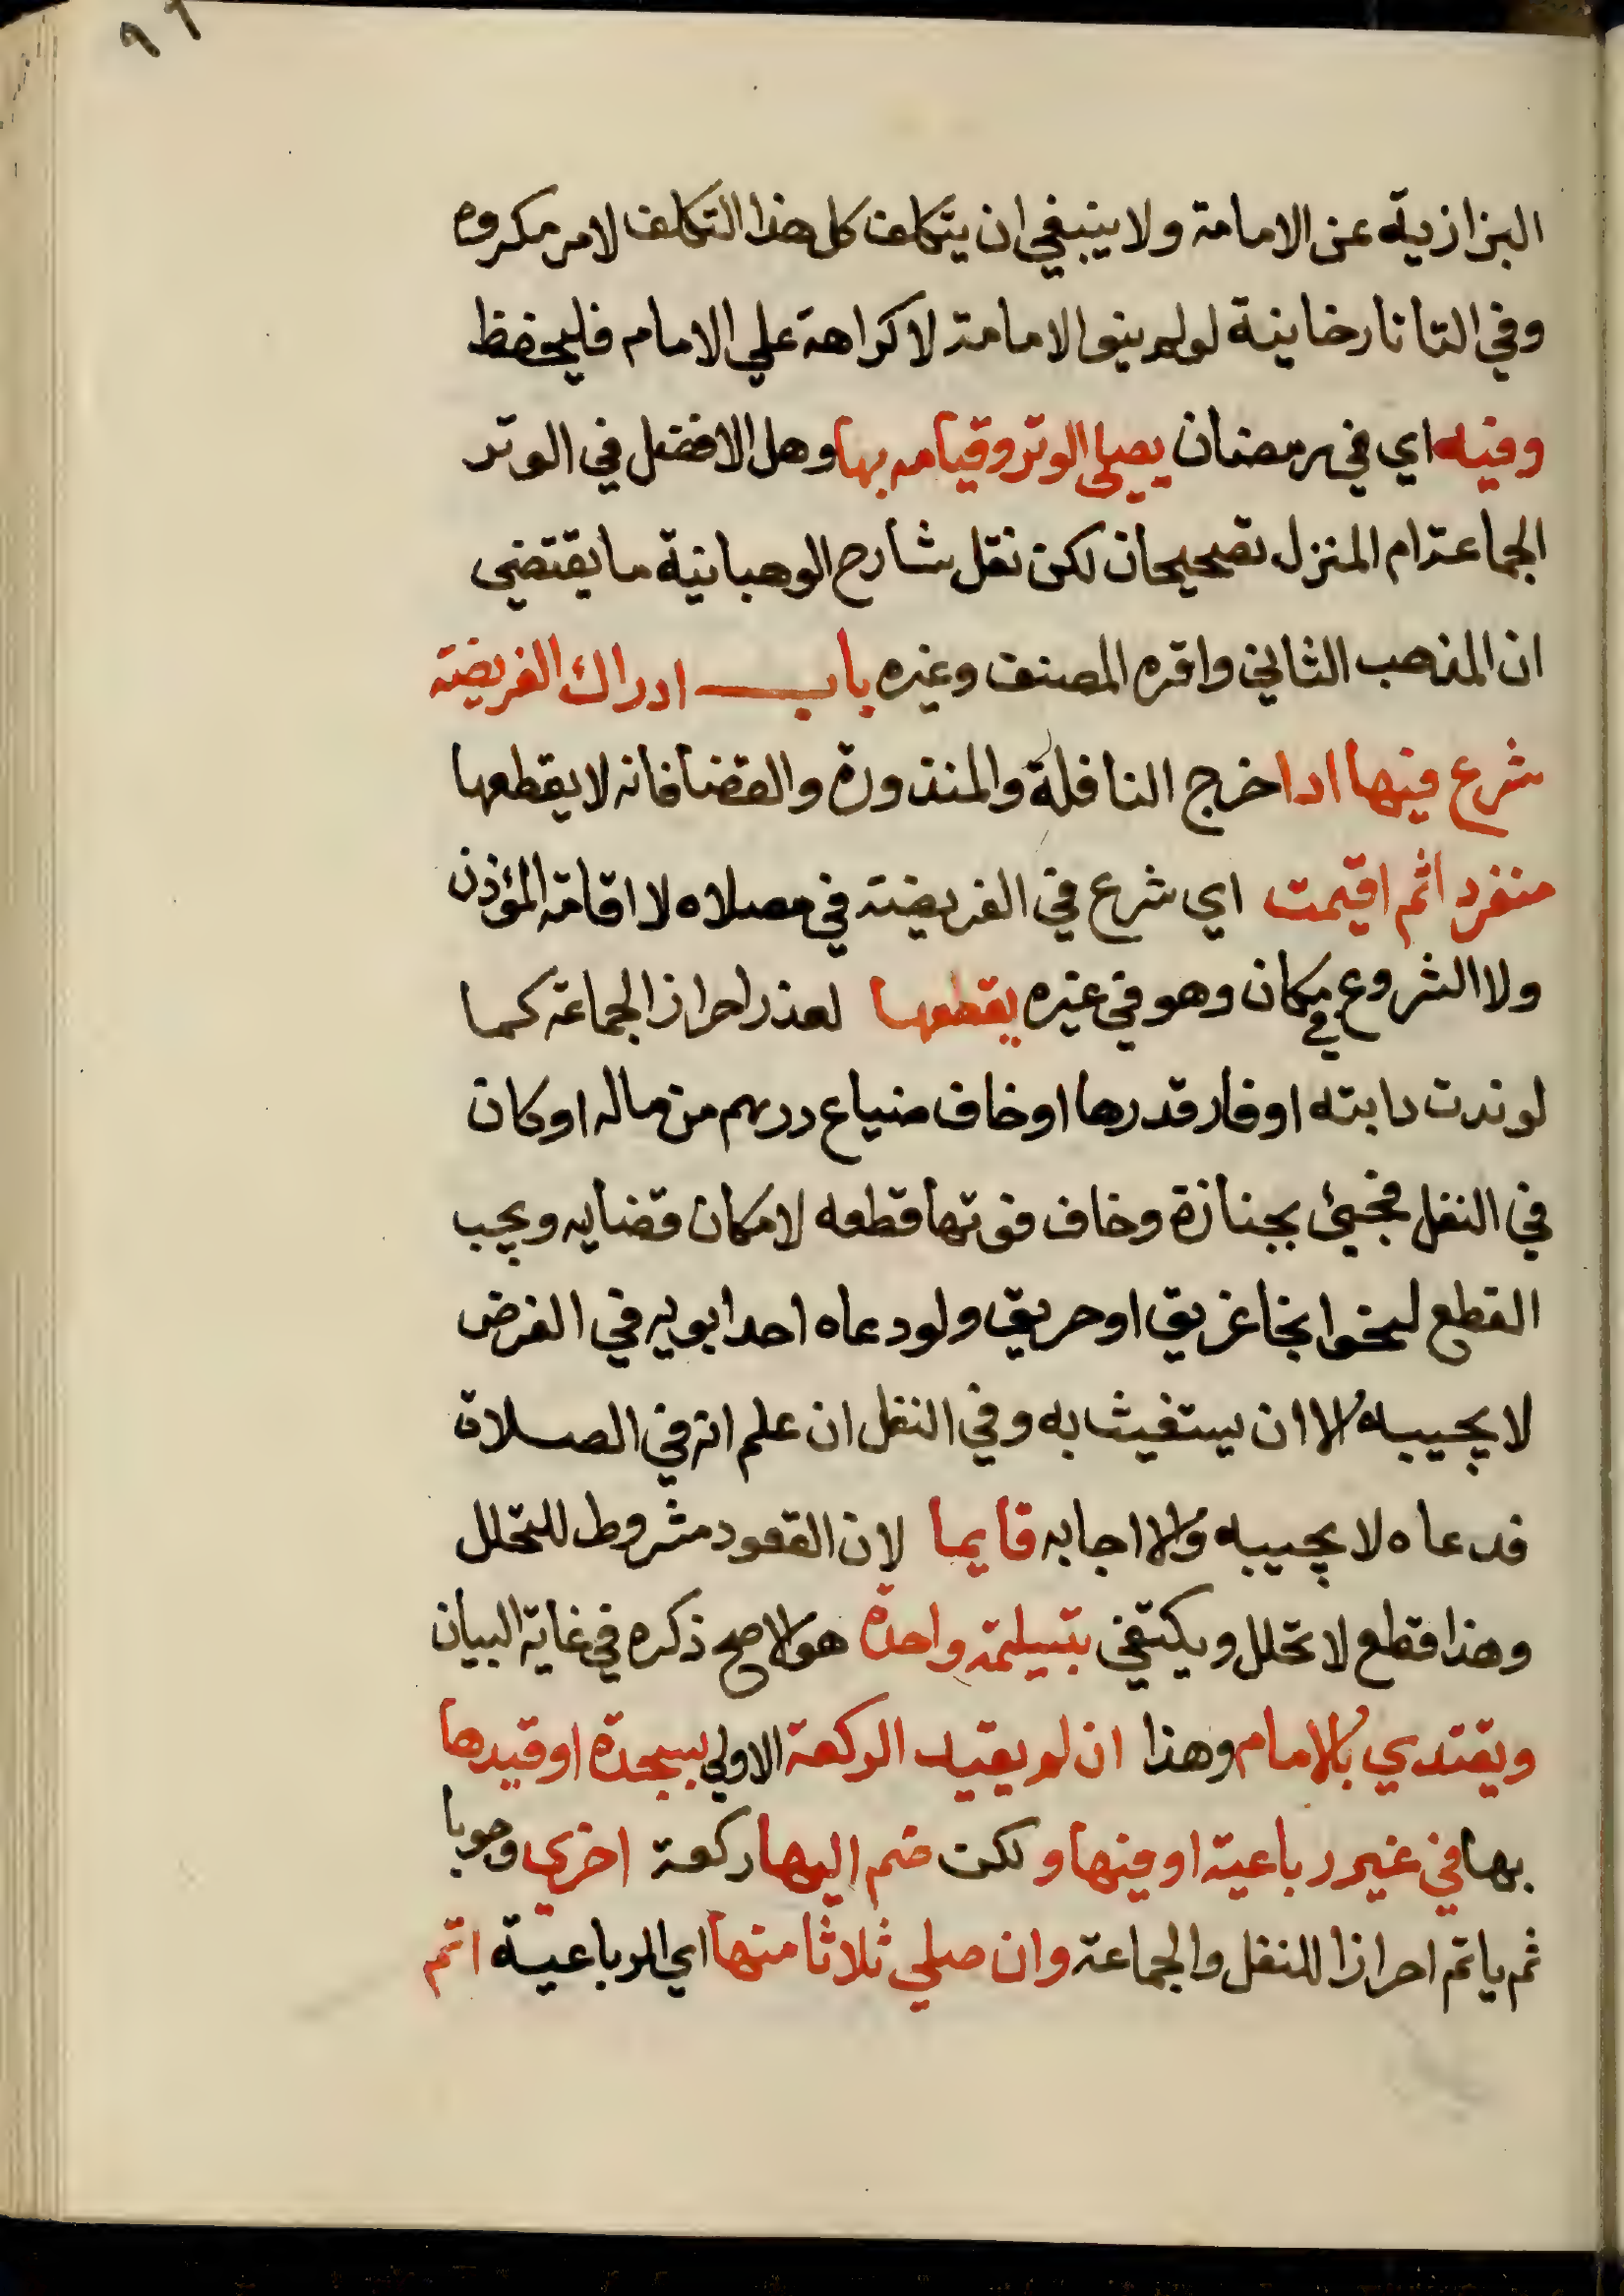 ٩٦
البزازية عن الامامة ولا ينبغي ان يتكلف كل هذا التكلف لامر مكروه
وفي التاتارخانية لو لم ينو الامامة لا كراهة علي الامام فليحفظ
وفيه اي في رمضان يصلي الوتر وقيامه بها وهل الافضل في الوتر
الجماعة ام المنزل تصحيحان لكن نقل شارح الوهبانية ما يقتضي
ان المذهب الثاني واقره المصنف وغيره باب ادراك الفريضة
شرع فيها ادا خرج النافلة والمنذورة والقضا فانه لا يقطعها
منفردا ثم اقيمت اي شرع في الفريضة في مصلاه لا اقامة المؤذن
ولا الشروع في مكان وهو في غيره يقطعها لعذر احراز الجماعة كما
لو ندت دابته او فار قدرها او خاف ضياع درهم من ماله او كان
في النفل فجيئ بجنازة وخاف فوتها قطعه لامكان قضايه ويجب
القطع لنحو انجا غريق او حريق ولو دعاه احد ابويه في الفرض
لا يجيبه الا ان يستغيث به وفي النفل ان علم انه في الصلاة
فدعاه لا يجيبه والا اجابه قايما لان القعود مشروط للتحلل
وهذا قطع لا تحلل ويكتفي بتسليمة واحدة هو الاصح ذكره في غاية البيان
ويقتدي بالامام وهذا ان لم يقيد الركعة الاولي بسجدة او قيدها
بها في غير رباعية او فيها و لكن ضم اليها ركعة اخري وجوبا
ثم ياتم احرازا للنفل والجماعة وان صلي ثلاثا منها اي الرباعية اتم